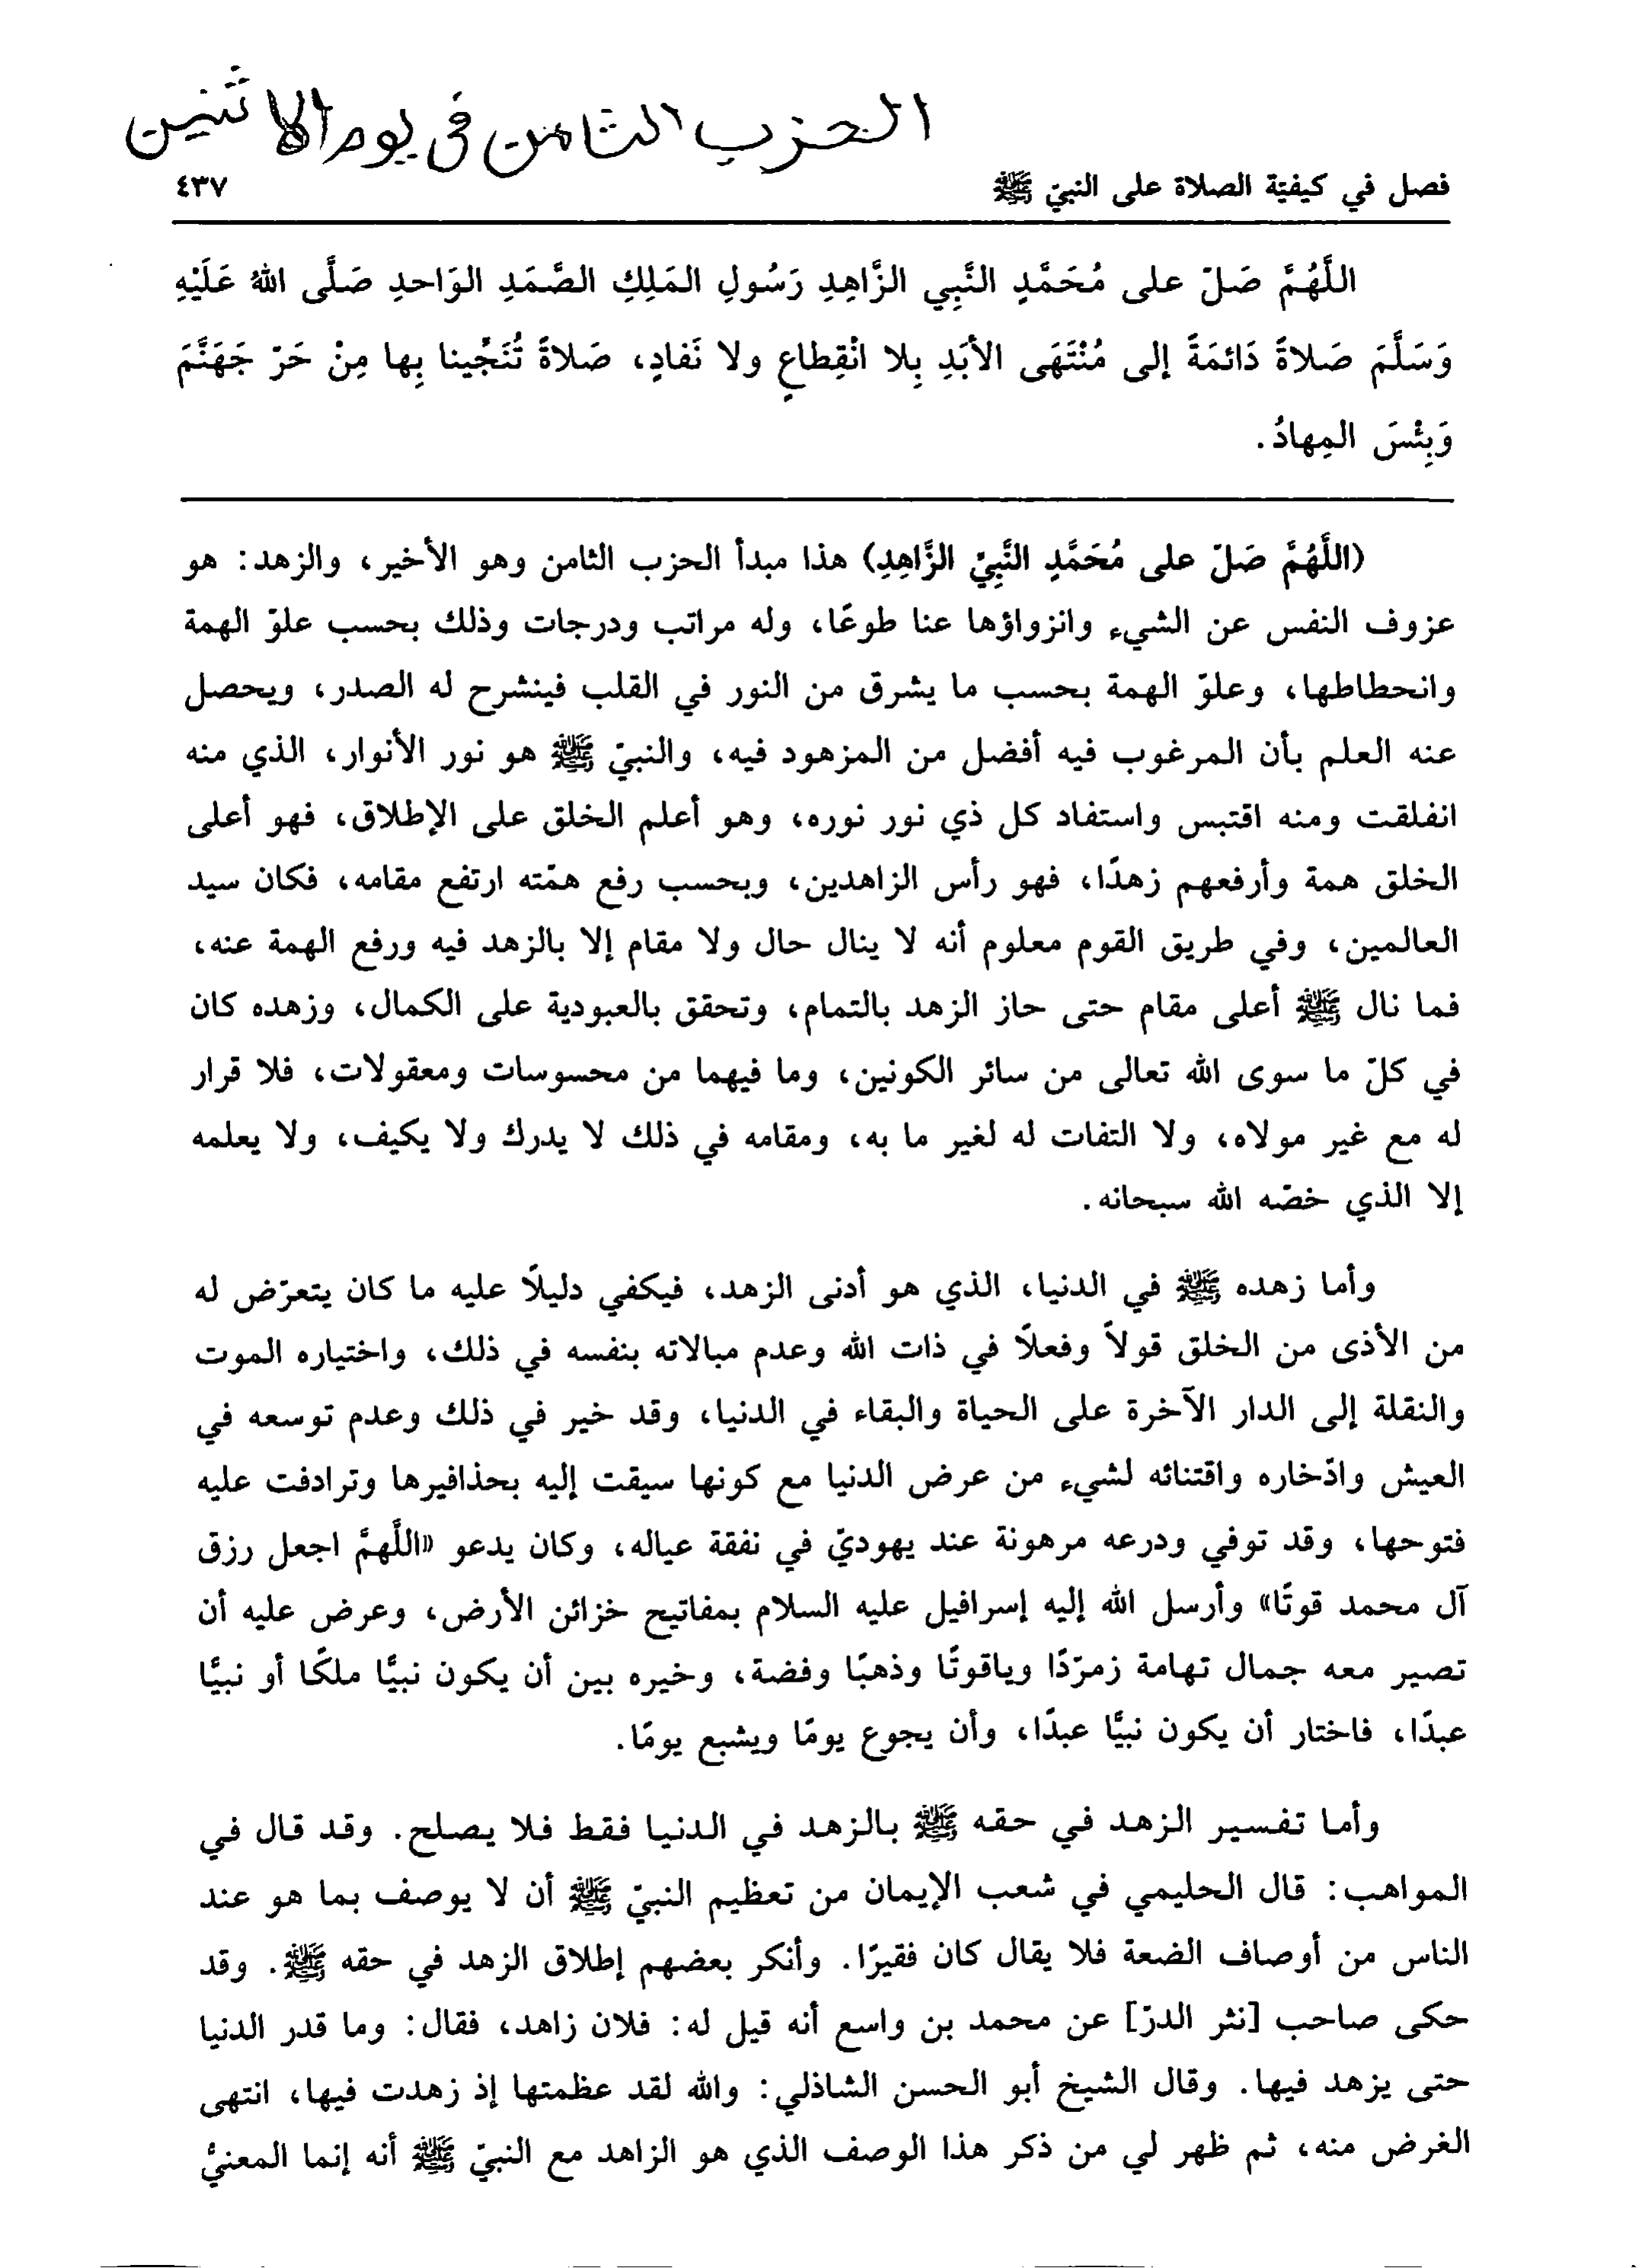 الحزب الثامن في يوم الاثنين
فصل في كيفيّة الصلاة على النبيّ ﷺ ٤٣٧
اللَّهُمَّ صَلّ على مُحَمَّدٍ النَّبِي الزَّاهِدِ رَسُولِ المَلِكِ الصَّمَدِ الوَاحدِ صَلَّى اللهُ عَلَيْهِ
وَسَلَّمَ صَلاةً دَائمَةً إلى مُنْتَهَى الأبَدِ بِلا انْقِطاعٍ ولا نَفادٍ، صَلاةً تُنَجِّينا بِها مِنْ حَرّ جَهَنَّمَ
وَبِئْسَ المِهادُ.
(اللَّهُمَّ صَلّ على مُحَمَّدٍ النَّبِيّ الزَّاهِدِ) هذا مبدأ الحزب الثامن وهو الأخير، والزهد: هو
عزوف النفس عن الشيء وانزواؤها عنا طوعًا، وله مراتب ودرجات وذلك بحسب علوّ الهمة
وانحطاطها، وعلوّ الهمة بحسب ما يشرق من النور في القلب فينشرح له الصدر، ويحصل
عنه العلم بأن المرغوب فيه أفضل من المزهود فيه، والنبيّ ﷺ هو نور الأنوار، الذي منه
انفلقت ومنه اقتبس واستفاد كل ذي نور نوره، وهو أعلم الخلق على الإطلاق، فهو أعلى
الخلق همة وأرفعهم زهدًا، فهو رأس الزاهدين، وبحسب رفع همّته ارتفع مقامه، فكان سيد
العالمين، وفي طريق القوم معلوم أنه لا ينال حال ولا مقام إلا بالزهد فيه ورفع الهمة عنه،
فما نال ﷺ أعلى مقام حتى حاز الزهد بالتمام، وتحقق بالعبودية على الكمال، وزهده كان
في كلّ ما سوى الله تعالى من سائر الكونين، وما فيهما من محسوسات ومعقولات، فلا قرار
له مع غير مولاه، ولا التفات له لغير ما به، ومقامه في ذلك لا يدرك ولا يكيف، ولا يعلمه
إلا الذي خصّه الله سبحانه.
وأما زهده ﷺ في الدنيا، الذي هو أدنى الزهد، فيكفي دليلاً عليه ما كان يتعرّض له
من الأذى من الخلق قولاً وفعلاً في ذات الله وعدم مبالاته بنفسه في ذلك، واختياره الموت
والنقلة إلى الدار الآخرة على الحياة والبقاء في الدنيا، وقد خير في ذلك وعدم توسعه في
العيش وادّخاره واقتنائه لشيء من عرض الدنيا مع كونها سيقت إليه بحذافيرها وترادفت عليه
فتوحها، وقد توفي ودرعه مرهونة عند يهوديّ في نفقة عياله، وكان يدعو «اللَّهمَّ اجعل رزق
آل محمد قوتًا» وأرسل الله إليه إسرافيل عليه السلام بمفاتيح خزائن الأرض، وعرض عليه أن
تصير معه جمال تهامة زمرّدًا وياقوتًا وذهبًا وفضة، وخيره بين أن يكون نبيًّا ملكًا أو نبيًّا
عبدًا، فاختار أن يكون نبيًّا عبدًا، وأن يجوع يومًا ويشبع يومًا.
وأما تفسير الزهد في حقه ﷺ بالزهد في الدنيا فقط فلا يصلح. وقد قال في
المواهب: قال الحليمي في شعب الإيمان من تعظيم النبيّ ﷺ أن لا يوصف بما هو عند
الناس من أوصاف الضعة فلا يقال كان فقيرًا. وأنكر بعضهم إطلاق الزهد في حقه ﷺ. وقد
حكى صاحب [نثر الدرّ] عن محمد بن واسع أنه قيل له: فلان زاهد، فقال: وما قدر الدنيا
حتى يزهد فيها. وقال الشيخ أبو الحسن الشاذلي: والله لقد عظمتها إذ زهدت فيها، انتهى
الغرض منه، ثم ظهر لي من ذكر هذا الوصف الذي هو الزاهد مع النبيّ ﷺ أنه إنما المعنيُّ